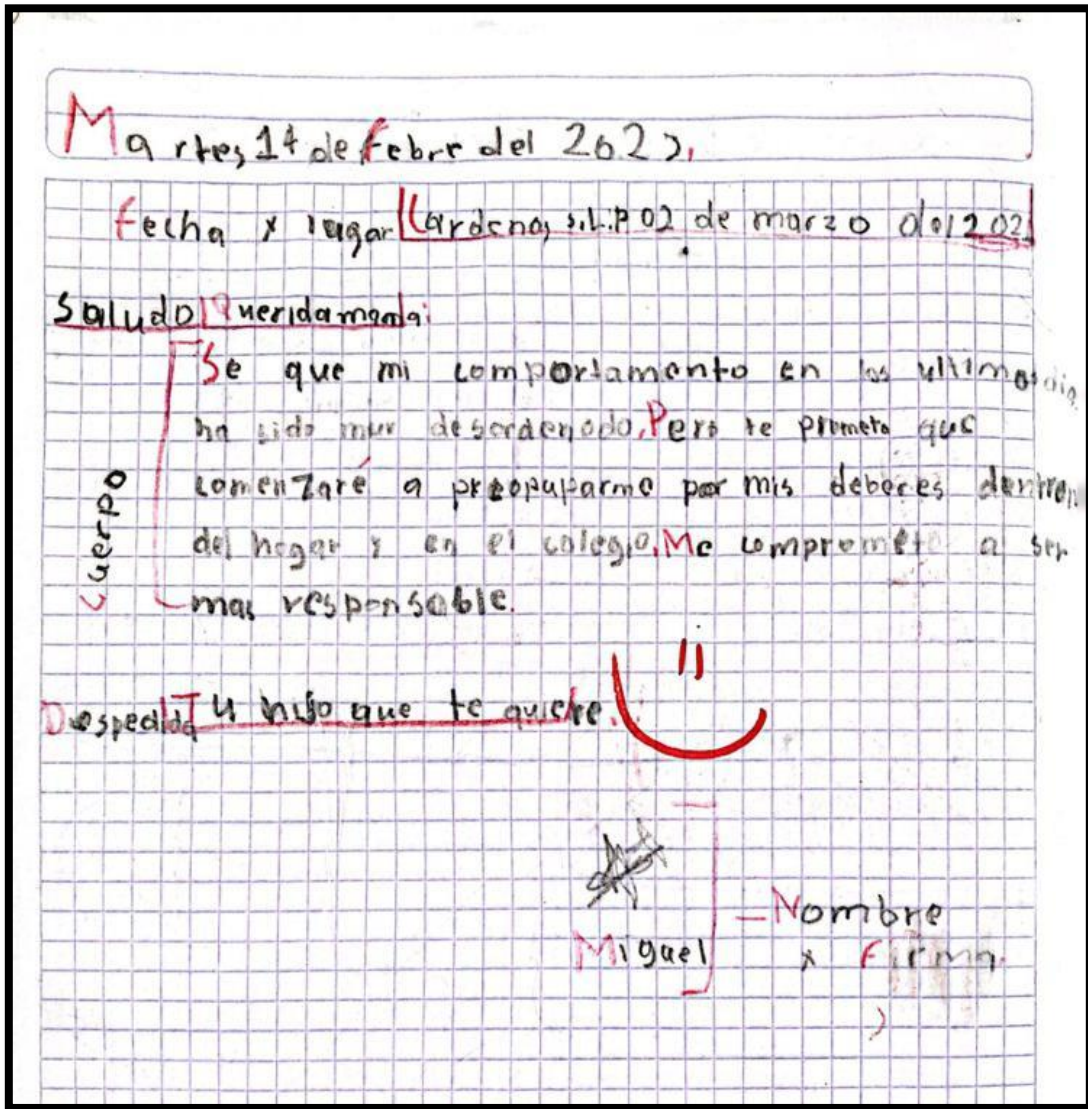 Martes 14 de Febre del 2023.
Fecha y lugar Cardenas, S.L.P 02 de marzo del 202
Saludo Querida mamá:
Se que mi comportamento en los ultimos dia
ha sido muy desordenado. Pero te prometo que
comenzaré a preopuparme por mis deberes dentron
del hogar y en el colegio. Me comprometo a ser
mas responsable.
Cuerpo
Despedida Tu hijo que te quiere.
Miguel
Nombre
y Firma